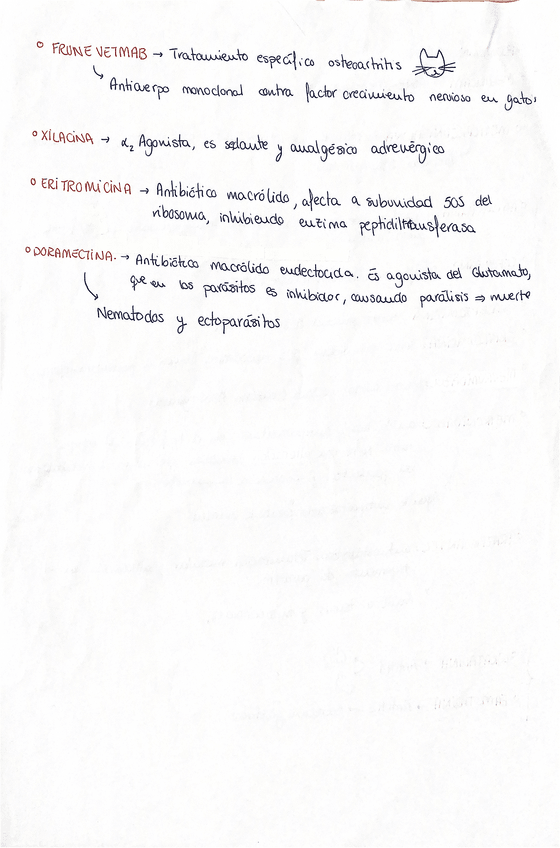 ° FRUNEVETMAB → Tratamiento específico osteoartritis
↳ Anticuerpo monoclonal contra factor crecimiento nervioso en gatos
° XILACINA → α₂ Agonista, es sedante y analgésico adrenérgico
° ERITROMICINA → Antibiótico macrólido, afecta a subunidad 50S del
ribosoma, inhibiendo enzima peptidiltransferasa
° DORAMECTINA. → Antibiótico macrólido endectocida. Es agonista del Glutamato,
que en los parásitos es inhibidor, causando parálisis ⇒ muerte
↳ Nematodos y ectoparásitos